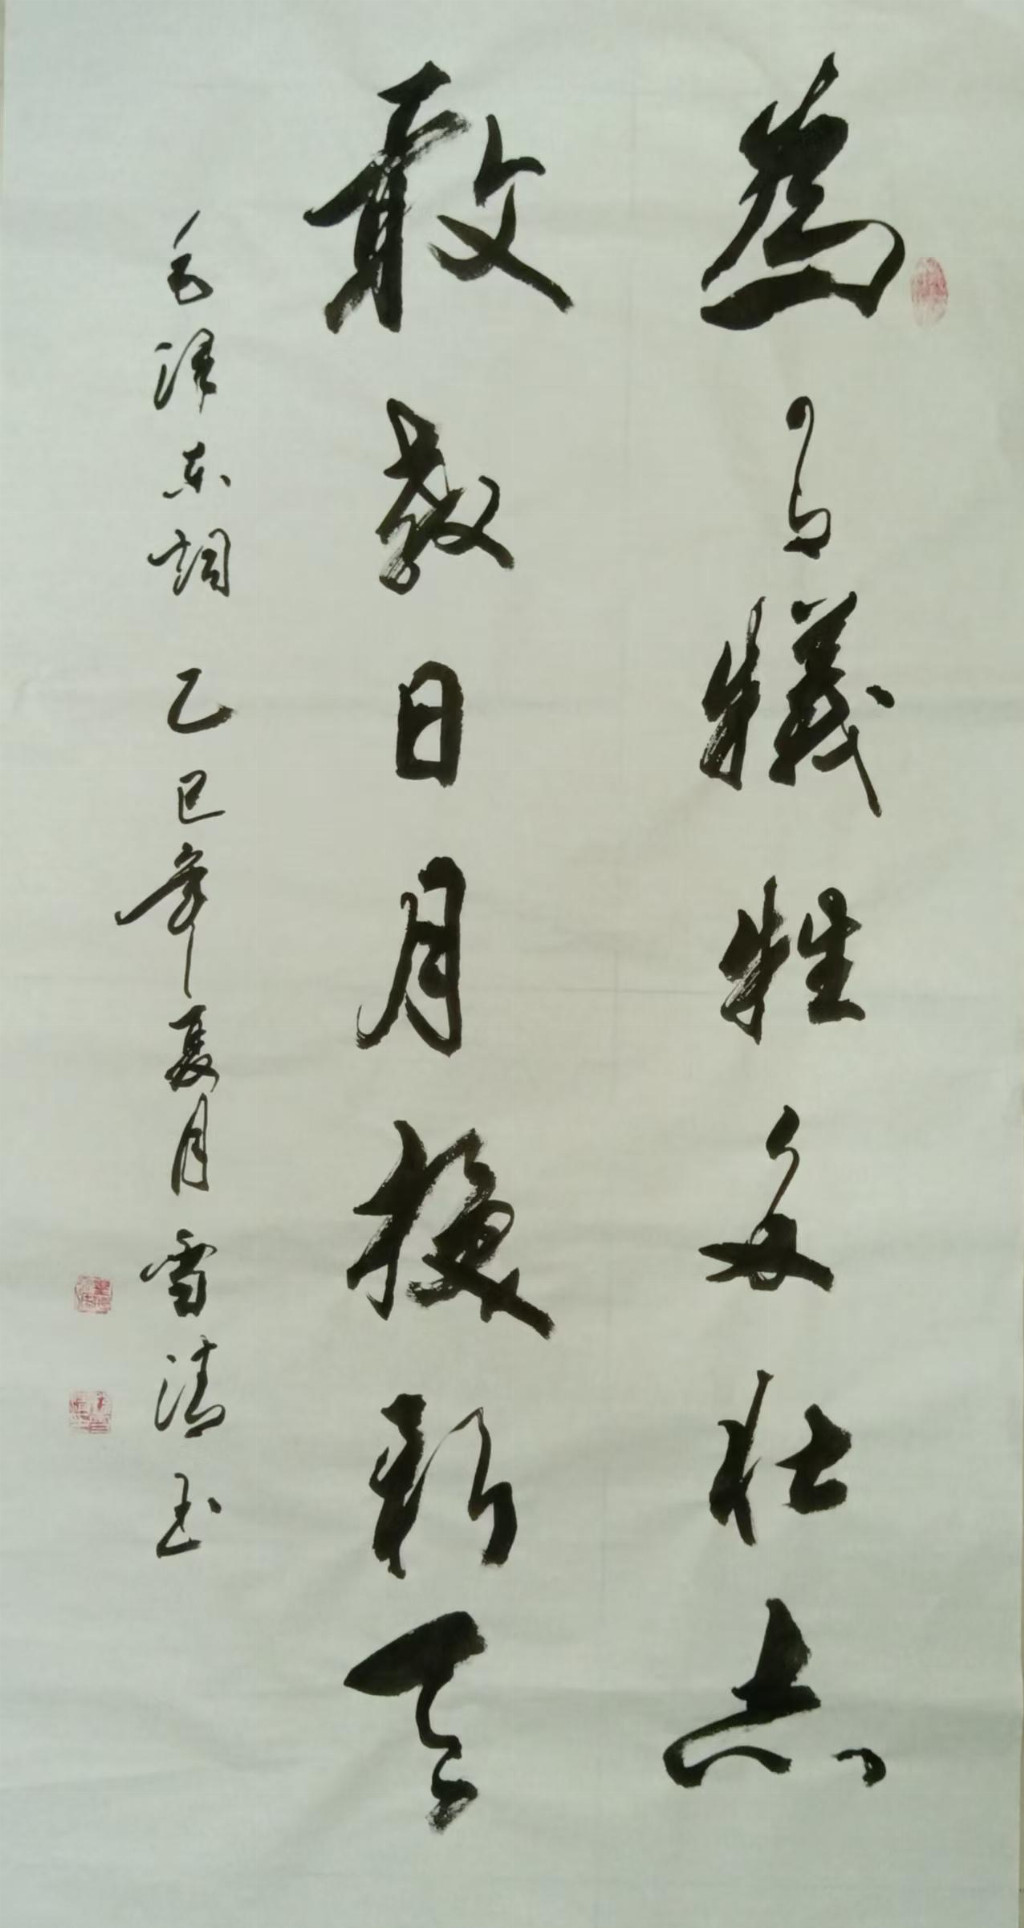 為有犧牲多壯志
敢教日月換新天
毛澤东詞 乙巳年夏月 雪清书